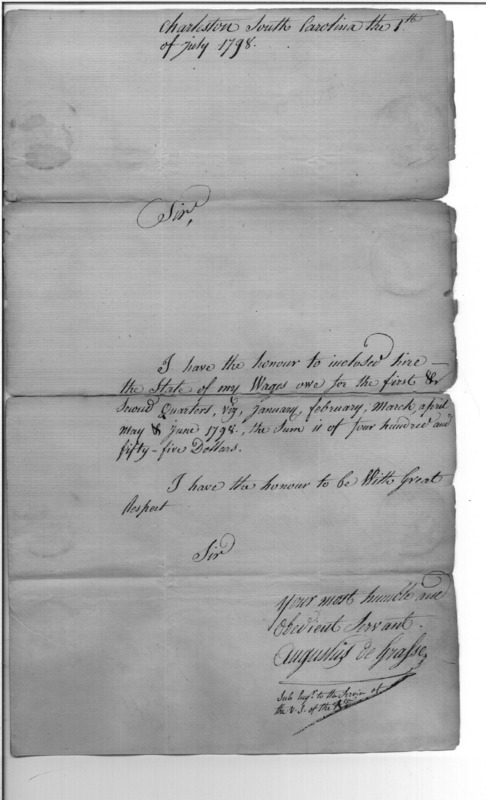 Charleston South Carolina the 1th
of july 1798.
Sir,
I have the honour to inclosed hire
the State of my Wages owe for the first &
Second Quarters, viz, january, february, March, april
may & june 1798, the Sum is of four hundred and
fifty-five Dollars.
I have the honour to be With Great
Respect
Sir
your most humble and
Obedient Servant.
Augustus de Grasse,
Sub Eng.r to the Service of
the U.S. of the